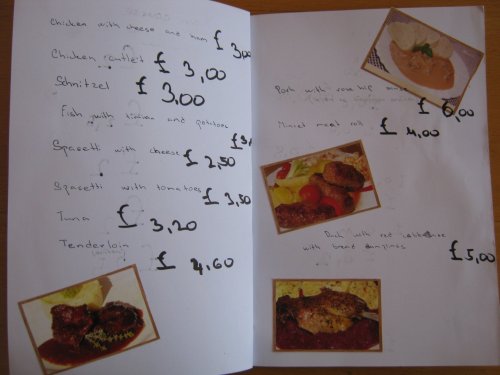 Chicken with cheese and ham £ 3,00
Chicken cutleit £ 3,00
Schnitzel £ 3,00
Fish with and potatoes
Spagetti with cheese £ 2,50
Spagetti with tomatoes £ 3,50
Tuna £ 3,20
Tenderloin £ 4,60
Pork with rose hip £ 6,00
Minced meat roll £ 4,00
Duck with red cabbage
with bread dumplings £ 5,00